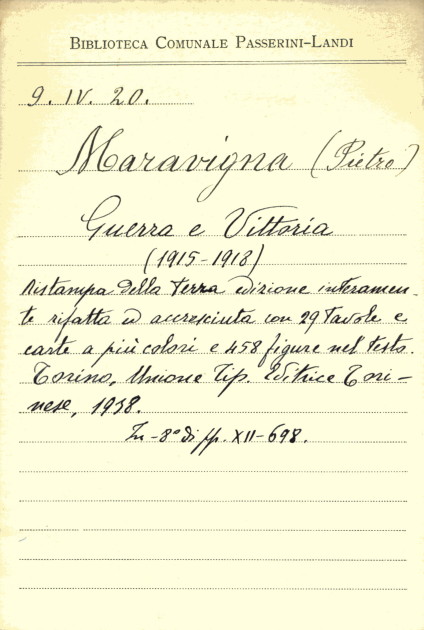 BIBLIOTECA COMUNALE PASSERINI-LANDI
9. IV. 20.
Maravigna (Pietro)
Guerra e Vittoria
(1915-1918)
Ristampa della terza edizione interamen-
te rifatta ed accresciuta con 29 Tavole e
carte a più colori e 458 figure nel testo.
Torino, Unione Tip. Editrice Tori-
nese, 1938.
In-8° di pp. XII-698.